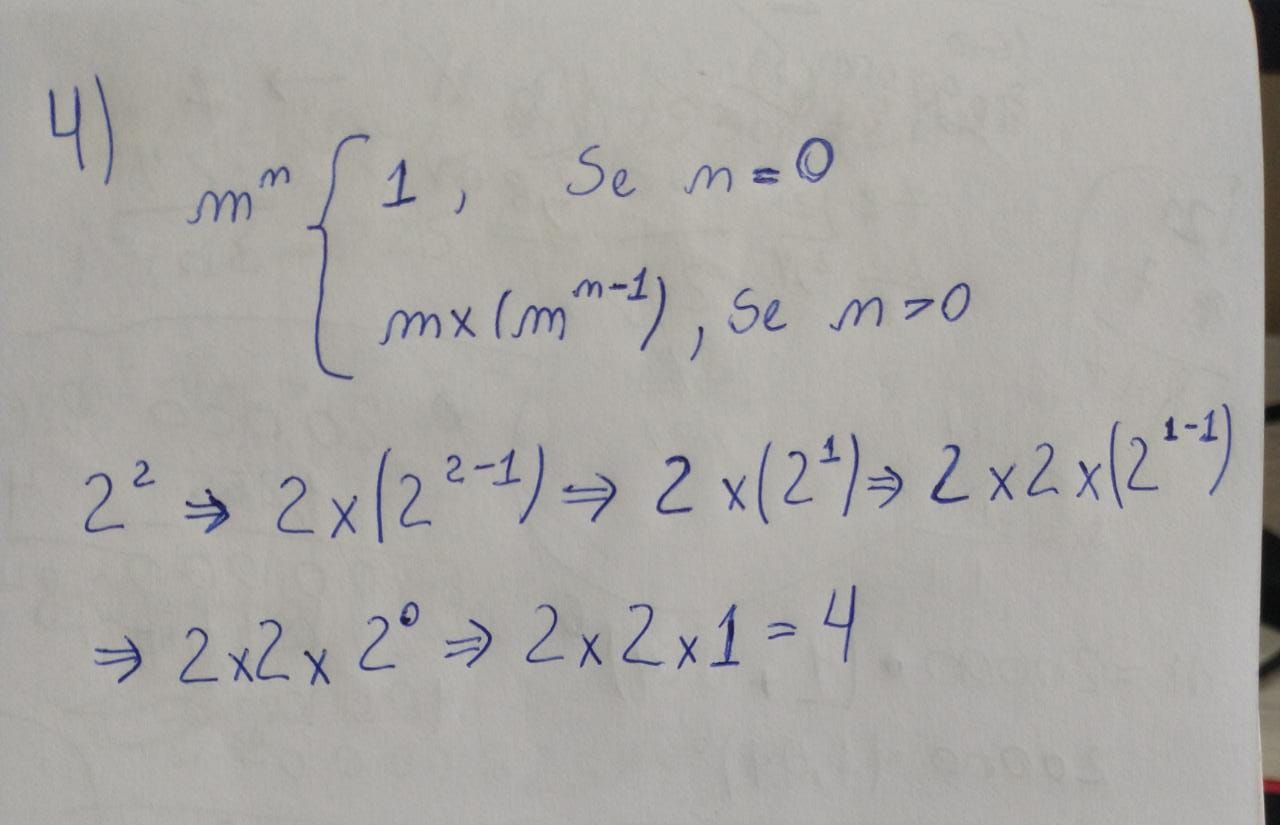 4)
mⁿ { 1 , Se n = 0
mx (mⁿ⁻¹) , Se n > 0
2² ⇒ 2 x (2²⁻¹) ⇒ 2 x (2¹) ⇒ 2 x 2 x (2¹⁻¹)
⇒ 2 x 2 x 2⁰ ⇒ 2 x 2 x 1 = 4